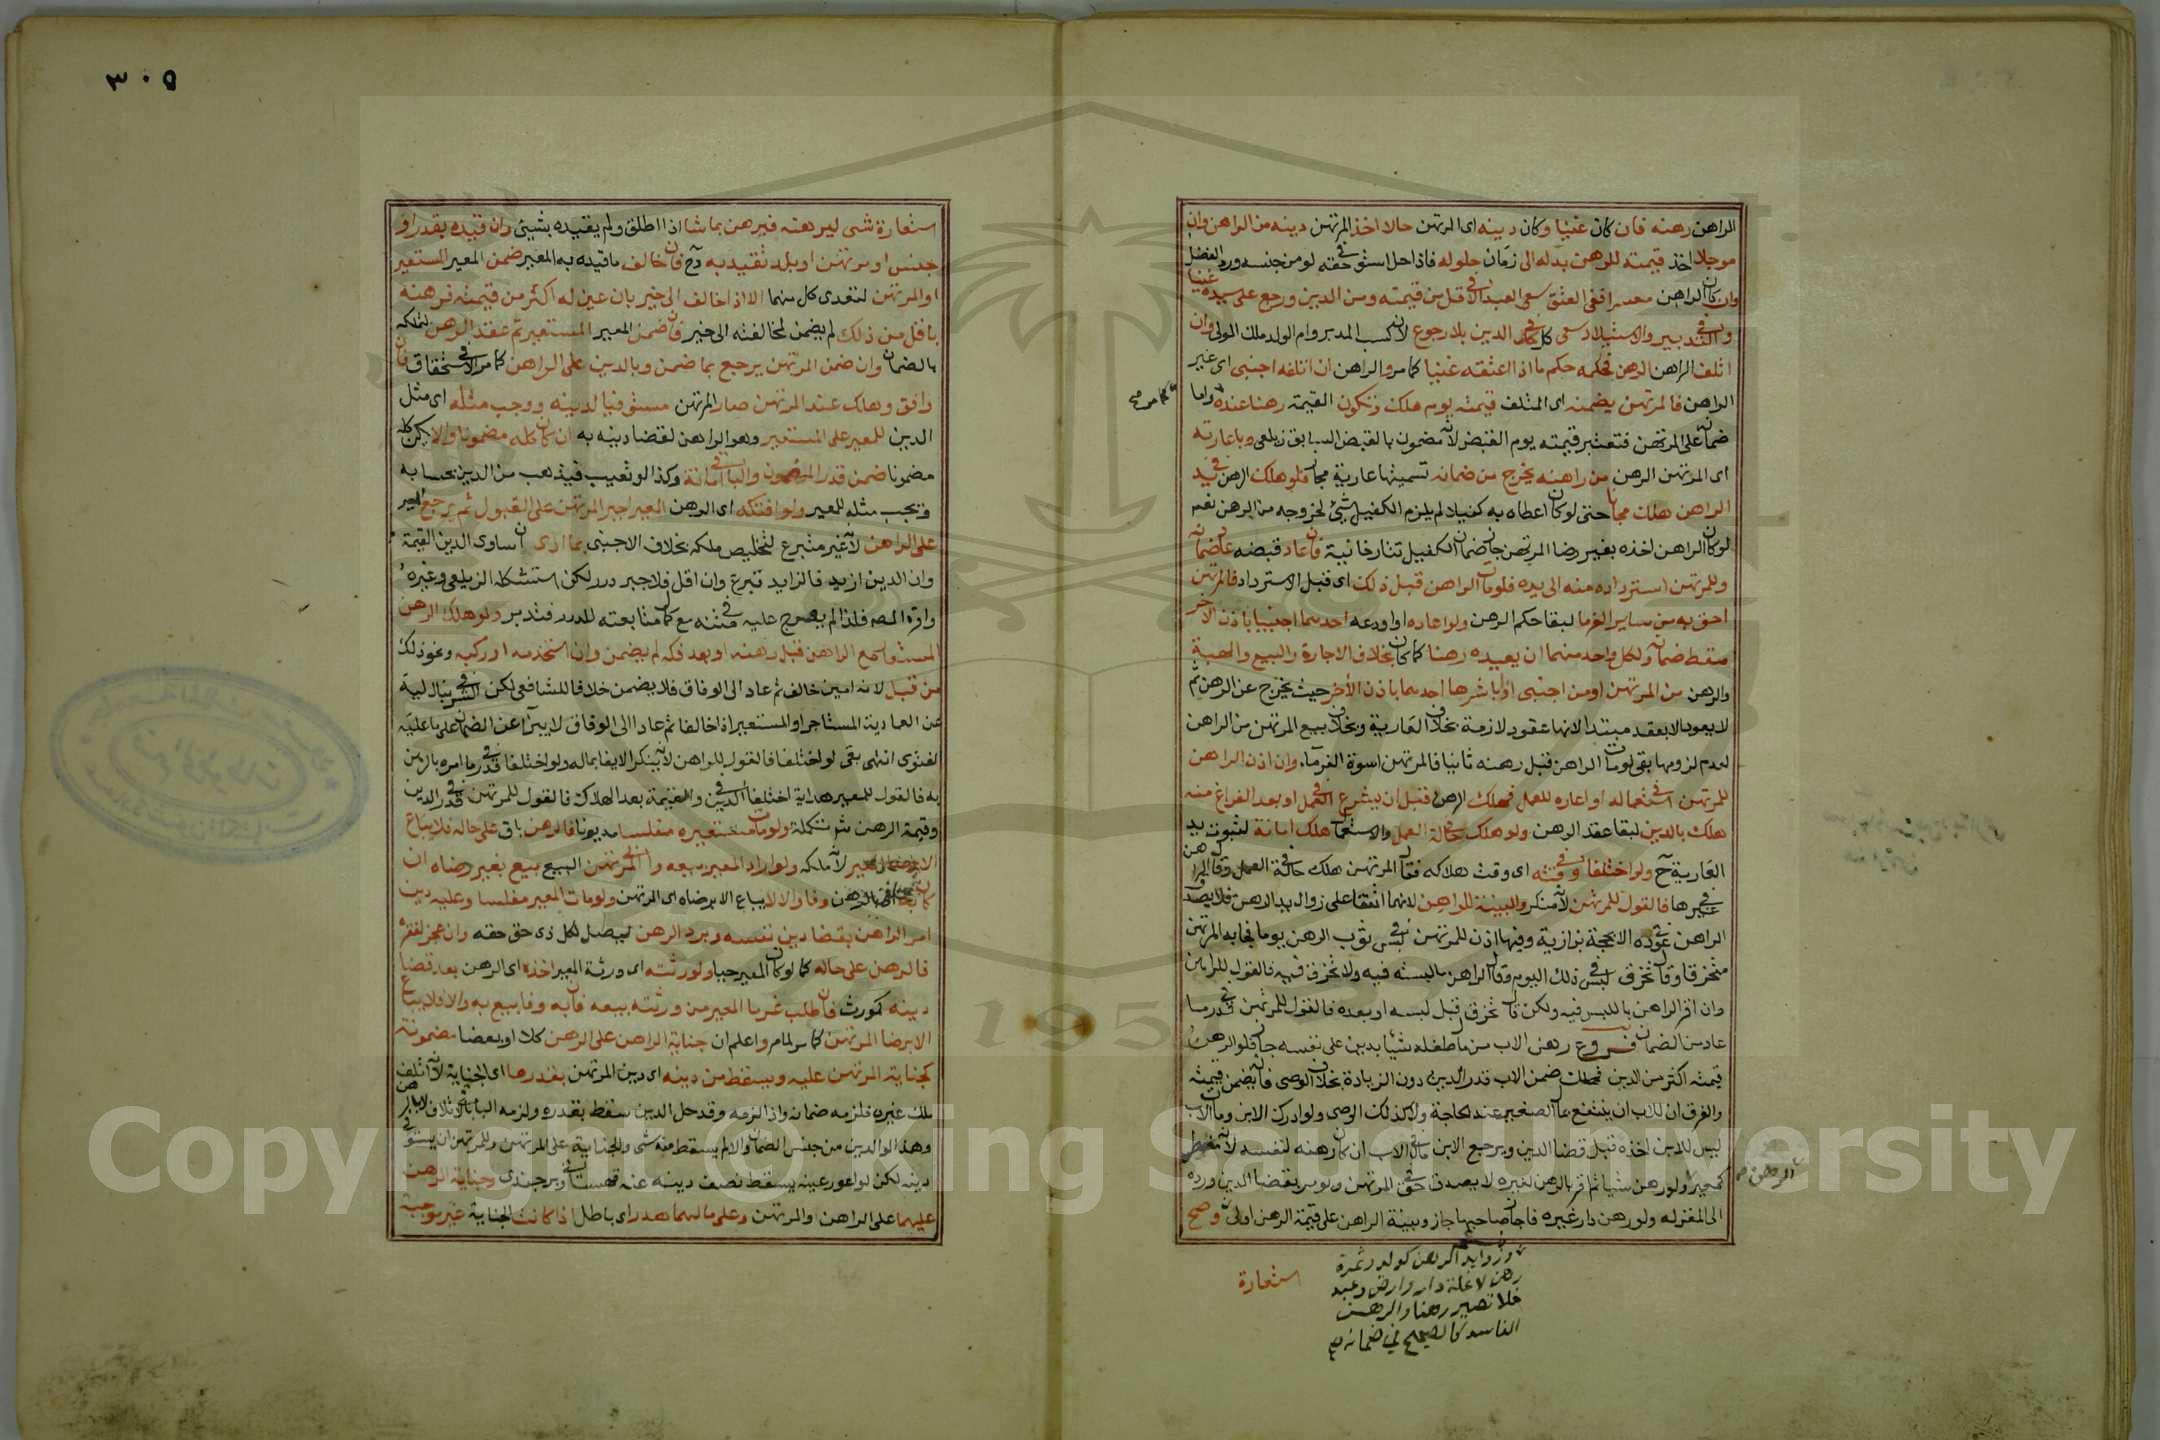 الراهن رهنه فان كان غنيا وكان دينه اى المرتهن حالا اخذ المرتهن دينه من الراهن وان
موجلا اخذ قيمته للرهن بدله الى زمان حلوله فاذا حل استوفى حقه لو من جنسه ورد الفضل
وان كان الراهن معسرا ففى العتق سعى العبد فى الاقل من قيمته ومن الدين ورجع على سيده غنيا
وفى التدبير والاستيلاد سعى كل فى كل الدين بلا رجوع لان كسب المدبر وام الولد ملك المولى وان
اتلف الراهن الرهن فحكمه حكم ما اذا اعتقه غنيا كما مر والراهن ان اتلفه اجنبى اى غير
الراهن فالمرتهن يضمنه اى المتلف قيمته يوم هلك وتكون القيمة رهنا عنده واما
ضمانه على المرتهن فتعتبر قيمته يوم القبض لانه مضمون بالقبض السابق زيلعى وباعارته
اى المرتهن الرهن من راهنه يخرج من ضمانه تسميتها عارية مجاز فلو هلك الرهن فى يد
الراهن هلك مجانا حتى لو كان اعطاه به كفيلا لم يلزم الكفيل شئ لخروجه من الرهن نعم
لو كان الراهن اخذه بغير رضا المرتهن جاز ضمان الكفيل تتارخانية فان عاد قبضه عاد ضمانه
وللمرتهن استرداده منه الى يده فلو مات الراهن قبل ذلك اى قبل الاسترداد فالمرتهن
احق به من ساير الغرما لبقا حكم الرهن ولو اعاره او اودعه احدهما اجنبيا باذن الاخر
سقط ضمانه ولكل واحد منهما ان يعيده رهنا كما كان بخلاف الاجارة والبيع والهبة
والرهن من المرتهن او من اجنبى اذا باشرها احدهما باذن الاخر حيث يخرج عن الرهن ثم
لا يعود الا بعقد مبتدا لانها عقود لازمة بخلاف العارية وبخلاف بيع المرتهن من الراهن
لعدم لزومها بقى لو مات الراهن قبل رهنه ثانيا فالمرتهن اسوة الغرما، وان اذن الراهن
للمرتهن فى استعماله او اعاره للعمل فهلك الرهن قبل ان يشرع فى العمل او بعد الفراغ منه
هلك بالدين لبقا عقد الرهن ولو هلك فى حالة العمل والاستعمال هلك امانة لثبوت يد
العارية ح ولو اختلفا فى وقته اى وقت هلاكه فقال المرتهن هلك فى حالة العمل وقال الراهن
فى غيرها فالقول للمرتهن لانه منكر والبينة للراهن لانهما اتفقا على زوال يد الرهن فلا يصدق
الراهن فى عوده الا بحجة بزازية وفيها اذن للمرتهن فى لبس ثوب الرهن يوما فجا به المرتهن
متخرقا وقال تخرق فى لبس ذلك اليوم وقال الراهن ما لبسته فيه ولا تخرق فيه فالقول للراهن
وان اقر الراهن باللبس فيه ولكن قال تخرق قبل لبسه او بعده فالقول للمرتهن فى قدر ما
عاد من الضمان فروع رهن الاب من مال طفله شيئا بدين على نفسه جاز فلو الرهن
قيمته اكثر من الدين فهلك ضمن الاب قدر الدين دون الزيادة بخلاف الوصى فانه يضمن قيمته
والفرق ان للاب ان ينتفع بمال الصغير عند الحاجة ولا كذلك الوصى ولو ادرك الابن ومات الاب
ليس للابن اخذه قبل قضا الدين ويرجع الابن فى مال الاب ان كان رهنه لنفسه لانه مضطر
كمعير ولو رهن شيئا ثم اقر بالرهن لغيره لا يصدق فى حق المرتهن ويؤمر بقضا الدين ورده
الى المقر له ولو رهن دار غيره فاجاز صاحبها جاز وبينة الراهن على قيمة الرهن اولى وصح
كما مر صح
الرهن
وزوايد الرهن كولد وثمرة
رهن لا غلة دار وارض وعبد
فلا تصير رهنا والرهن
الفاسد كالصحيح فى ضمانه صح
استعارة
٣٠٩
استعارة شى ليرهنه فيرهن بما شا اذا اطلق ولم يقيده بشيئ وان قيده بقدر او
جنس او مرتهن او بلد تقيد به وح فان خالف ما قيده به المعير ضمن المعير المستعير
او المرتهن لتعدى كل منهما الا اذا خالف الى خير بان عين له اكثر من قيمته فرهنه
باقل من ذلك لم يضمن لمخالفته الى خير فان ضمن المعير المستعير تم عقد الرهن لتملكه
بالضمان وان ضمن المرتهن يرجع بما ضمن وبالدين على الراهن كما مر فى الاستحقاق فان
وافق وهلك عند المرتهن صار المرتهن مستوفيا لدينه ووجب مثله اى مثل
الدين للمعير على المستعير وهو الراهن لقضا دينه به ان كان كله مضمونا والا يكن كله
مضمونا ضمن قدر المضمون والباقى امانة وكذا لو تعيب فيذهب من الدين بحسابه
ويجب مثله للمعير ولو افتكه اى الرهن المعير اجبر المرتهن على القبول ثم يرجع المعير
على الراهن لانه غير متبرع لتخليص ملكه بخلاف الاجنبى بما ادى ان ساوى الدين القيمة
وان الدين ازيد فالزايد تبرع وان اقل فلا جبر درر لكن استشكله الزيلعى وغيره
واقره المص فلذا لم يعرج عليه فى متنه مع كمال متابعته للدرر فتدبر ولو هلك الرهن
المستعار مع الراهن قبل رهنه او بعد فكه لم يضمن وان استخدمه او ركبه ونحو ذلك
من قبل لانه امين خالف ثم عاد الى الوفاق فلا يضمن خلافا للشافعى لكن فى الشرنبلالية
عن العمادية المستاجر او المستعير اذا خالفا ثم عاد الى الوفاق لا يبرا عن الضمان على ما عليه
الفتوى انتهى بقى لو اختلفا فالقول للراهن لانه ينكر الايفا بماله ولو اختلفا فى قدر ما امره بالرهن
به فالقول للمعير هداية اختلفا فى الدين والقيمة بعد الهلاك فالقول للمرتهن فى قدر الدين
وقيمة الرهن شرح تكملة ولو مات مستعيره مفلسا مديونا فالرهن باق على حاله فلا يباع
الا برضا المعير لانه ملكه ولو اراد المعير بيعه وابى المرتهن البيع بيع بغير رضاه ان
كان به اى بالرهن وفا والا لا يباع الا برضاه اى المرتهن ولو مات المعير مفلسا وعليه دين
امر الراهن بقضا دين نفسه ويرد الرهن ليصل لكل ذى حق حقه وان عجز لفقره
فالرهن على حاله كما لو كان المعير حيا ولورثته اى ورثة المعير اخذه اى الرهن بعد قضا
دينه كمورث فان طلب غرما المعير من ورثته بيعه فان به وفا بيع به والا فلا يباع
الا برضا المرتهن كما مر لما مر واعلم ان جناية الراهن على الرهن كلا او بعضا مضمونة
كجناية المرتهن عليه ويسقط من دينه اى دين المرتهن بقدرها اى الجناية لانه اتلف
ملك غيره فلزمه ضمانه واذا لزمه وقد حل الدين سقط بقدره ولزمه الباقى بالاتلاف لا بالرهن
وهذا لو الدين من جنس الضمان والا لم يسقط منه شى والجناية على المرتهن وللمرتهن ان يستوفى
دينه لكن لو اعور عينه يسقط نصف دينه عنه قهستانى وبرجندى وجناية الرهن
عليهما على الراهن والمرتهن وعلى مالهما هدر اى باطل اذا كانت الجناية غير موجبة
Copyright © King Saud University
1957